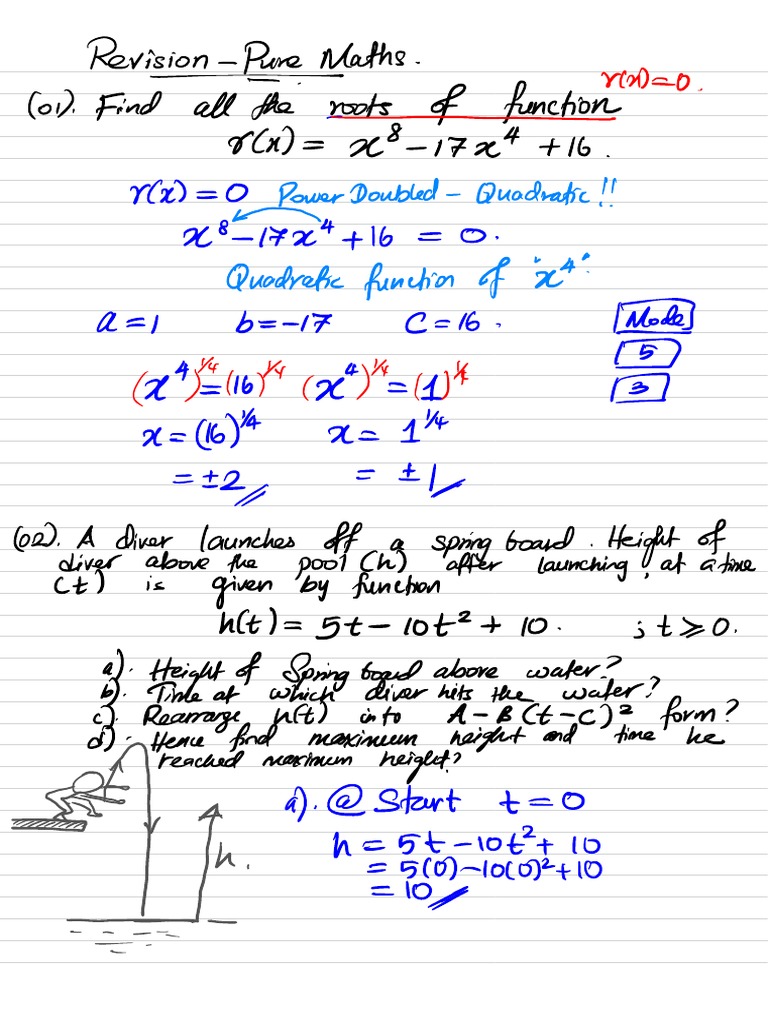 Revision – Pure Maths.
r(x)=0.
(01). Find all the roots of function
r(x) = x⁸ – 17x⁴ + 16.
r(x) = 0 Power Doubled – Quadratic!!
x⁸ – 17x⁴ + 16 = 0.
Quadratic function of "x⁴".
a = 1 b = –17 C = 16.
Mode
5
3
(x⁴)^1/4 = (16)^1/4 (x⁴)^1/4 = (1)^1/4
x = (16)^1/4 x = 1^1/4
= ±2 = ±1
(02). A diver launches off a spring board. Height of
diver above the pool (h) after launching, at a time
(t) is given by function
h(t) = 5t – 10t² + 10. ; t ≥ 0.
a). Height of Spring board above water?
b). Time at which diver hits the water?
c). Rearrange h(t) into A – B(t – C)² form?
d). Hence find maximum height and time he
reached maximum height?
a). @ Start t = 0
h = 5t – 10t² + 10
= 5(0) – 10(0)² + 10
= 10
h.